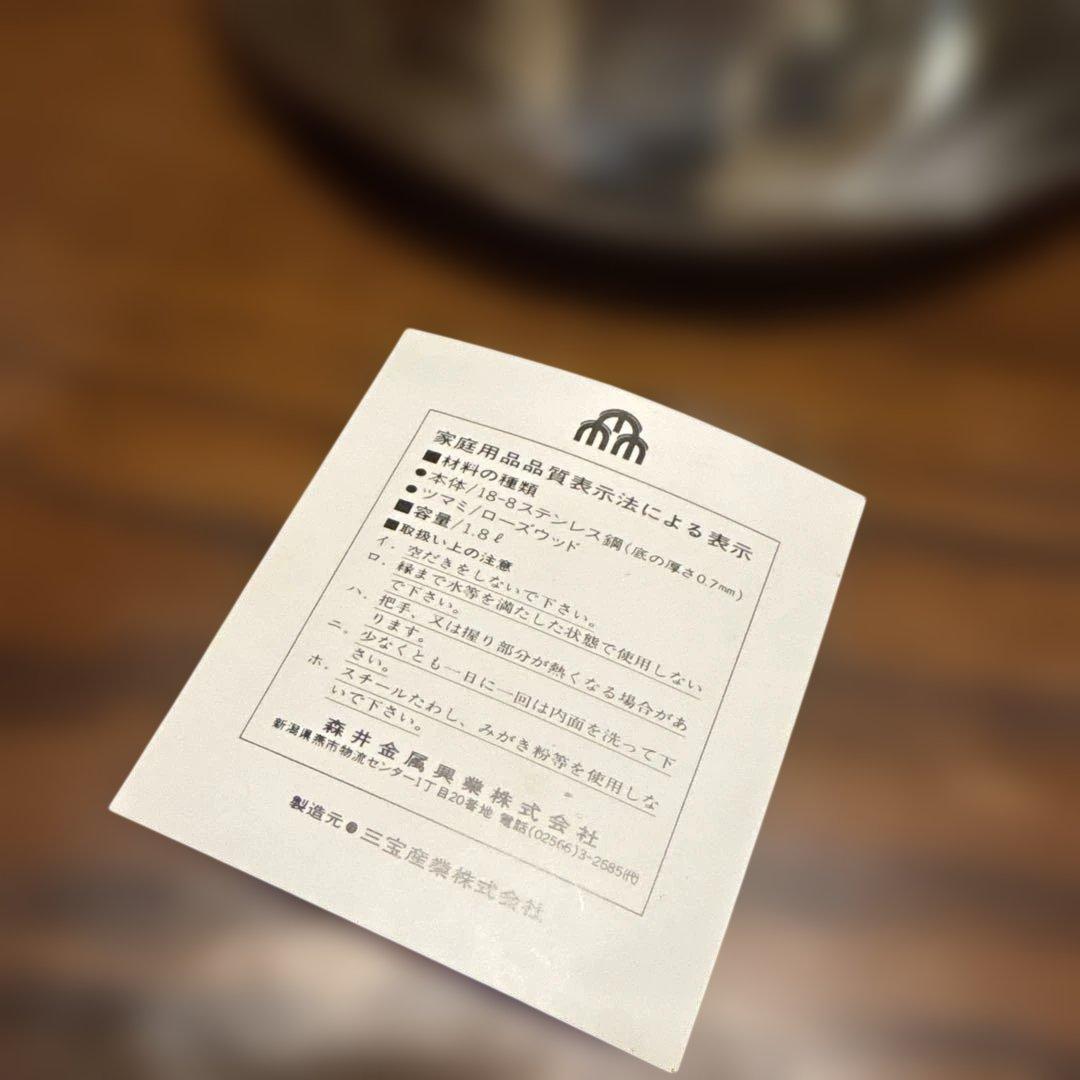 家庭用品品質表示法による表示
■材料の種類
●本体/18-8ステンレス鋼(底の厚さ0.7mm)
●ツマミ/ローズウッド
■容量/1.8ℓ
■取扱い上の注意
イ. 空だきをしないで下さい。
ロ. 縁まで水等を満たした状態で使用しない
で下さい。
ハ. 把手、又は握り部分が熱くなる場合があ
ります。
ニ. 少なくとも一日に一回は内面を洗って下
さい。
ホ. スチールたわし、みがき粉等を使用しな
いで下さい。
森井金属興業株式会社
新潟県燕市物流センター1丁目20番地 電話(02566)3-2685㈹
製造元●三宝産業株式会社